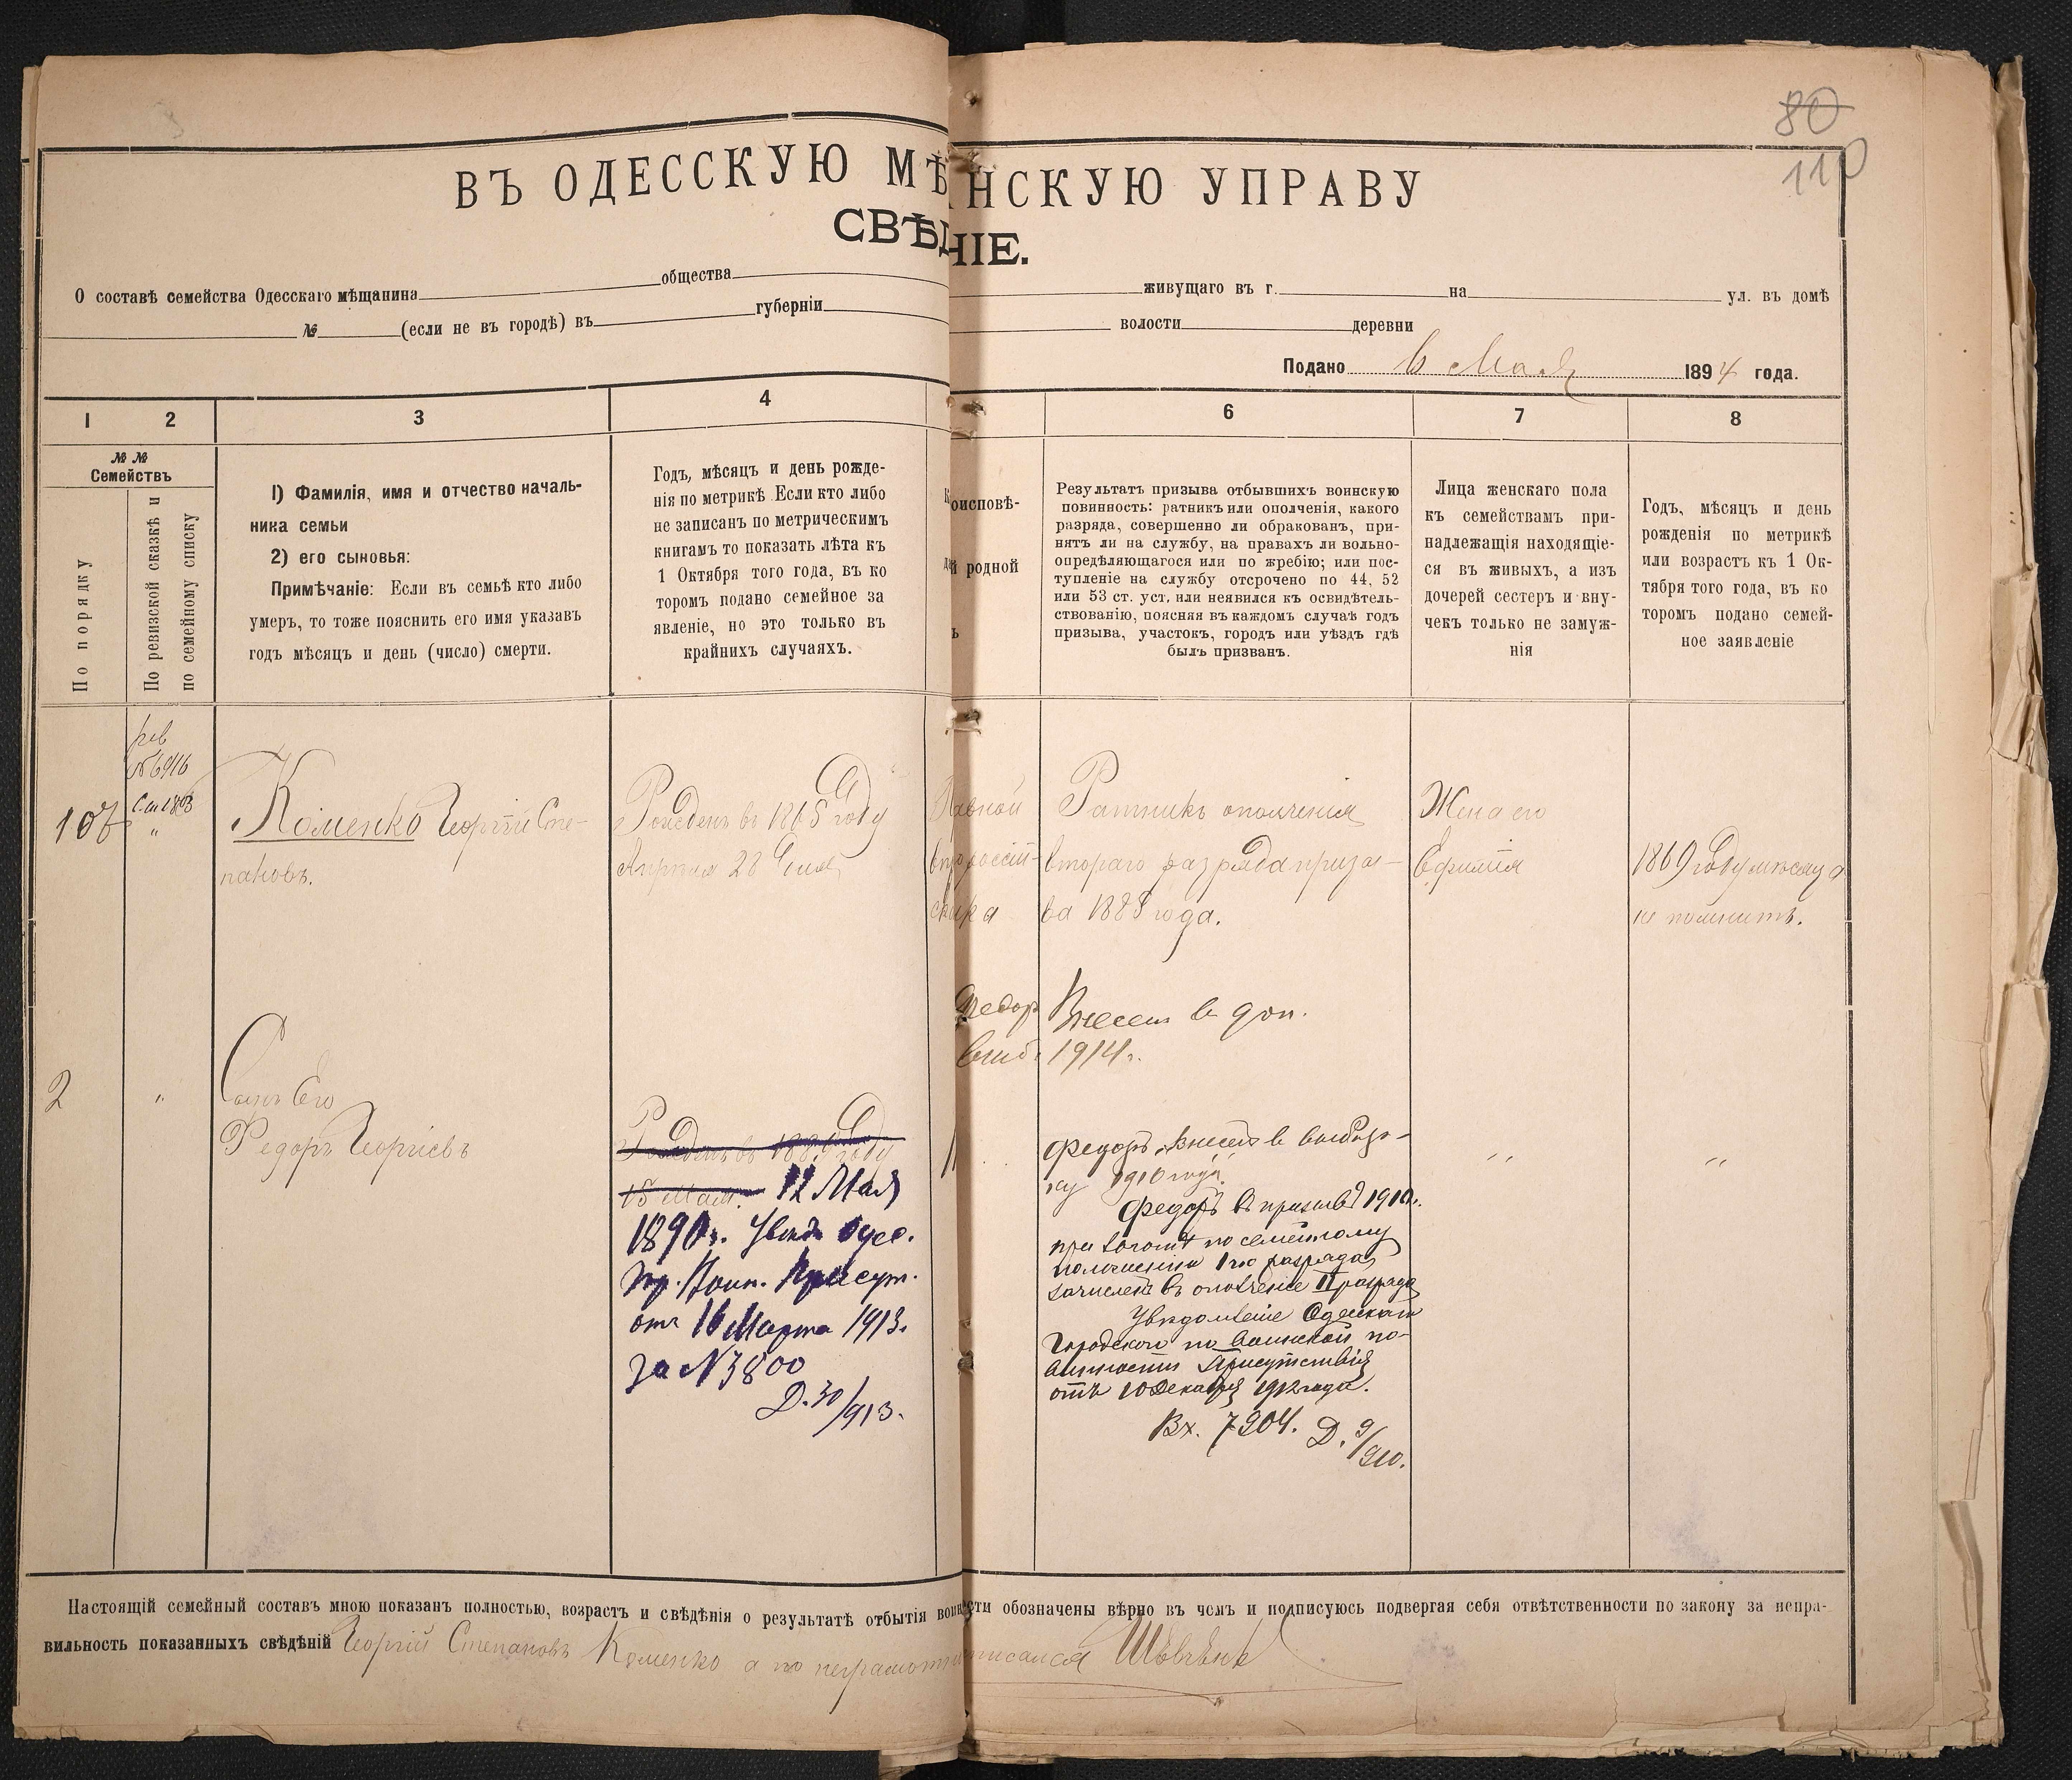 80
110
ВЪ ОДЕССКУЮ МѢ НСКУЮ УПРАВУ
СВѢД НІЕ.
О составѣ семейства Одесскаго мѣщанина общества живущаго въ г. на ул. въ домѣ
№ (если не въ городѣ) въ губерніи волости деревни
Подано 6 Мая 1894 года.
1 2 3 4 6 7 8
№ № Семействъ
По порядку
По ревизской сказкѣ и
по семейному списку
1) Фамилія, имя и отчество началь-
ника семьи
2) его сыновья:
Примѣчаніе: Если въ семьѣ кто либо
умеръ, то тоже пояснить его имя указавъ
годъ мѣсяцъ и день (число) смерти.
Годъ, мѣсяцъ и день рожде-
нія по метрикѣ Если кто либо
не записанъ по метрическимъ
книгамъ то показать лѣта къ
1 Октября того года, въ ко
торомъ подано семейное за
явленіе, но это только въ
крайнихъ случаяхъ.
оисповѣ-
й родной
ъ
Результатъ призыва отбывшихъ воинскую
повинность: ратникъ или ополченія, какого
разряда, совершенно ли обракованъ, при-
нятъ ли на службу, на правахъ ли вольно-
опредѣляющагося или по жребію; или пос-
тупленіе на службу отсрочено по 44, 52
или 53 ст. уст. или неявился къ освидѣтель-
ствованію, поясняя въ каждомъ случаѣ годъ
призыва, участокъ, городъ или уѣздъ гдѣ
былъ призванъ.
Лица женскаго пола
къ семействамъ при-
надлежащія находящіе-
ся въ живыхъ, а изъ
дочерей сестеръ и вну-
чекъ только не замуж-
нія
Годъ, мѣсяцъ и день
рожденія по метрикѣ
или возрастъ къ 1 Ок-
тября того года, въ ко
торомъ подано семей-
ное заявленіе
107
рев
№ 6916
"
Коменко Георгій Сте-
пановъ.
Рожденъ въ 1865 году
Апрѣля 28 дня
Ратникъ ополченія
втораго разряда призы-
ва 188 года.
Жена его
Ефимія
1869 году мѣсяца
не помнитъ.
Федор Внесен в доп.
1914 г.
2
"
Сынъ Его
Федоръ Георгіевъ
Рожденъ въ 188 году
15 Мая. 12 Мая
1890 г. Увѣд. Одес.
Гор. Воин. Присут.
отъ 16 Марта 1913 г.
за № 3800
Д. 30/913.
Федоръ внесен в
1910 года.
Федоръ въ призывѣ 1910 г.
при льготѣ по семейному
положенію 1го разряда
зачисленъ въ ополченіе II разряда
Увѣдомленіе Одесскаго
Городского по воинской по-
винности Присутствія
отъ 10 Декабря 1912 года.
Вх. 7204. Д. 9/910.
"
"
Настоящій семейный составъ мною показанъ полностью, возрастъ и свѣдѣнія о результатѣ отбытія воин сти обозначены вѣрно въ чемъ и подписуюсь подвергая себя отвѣтственности по закону за непра-
вильность показанныхъ свѣдѣній Георгій Степановъ Коменко а по неграмотн писался